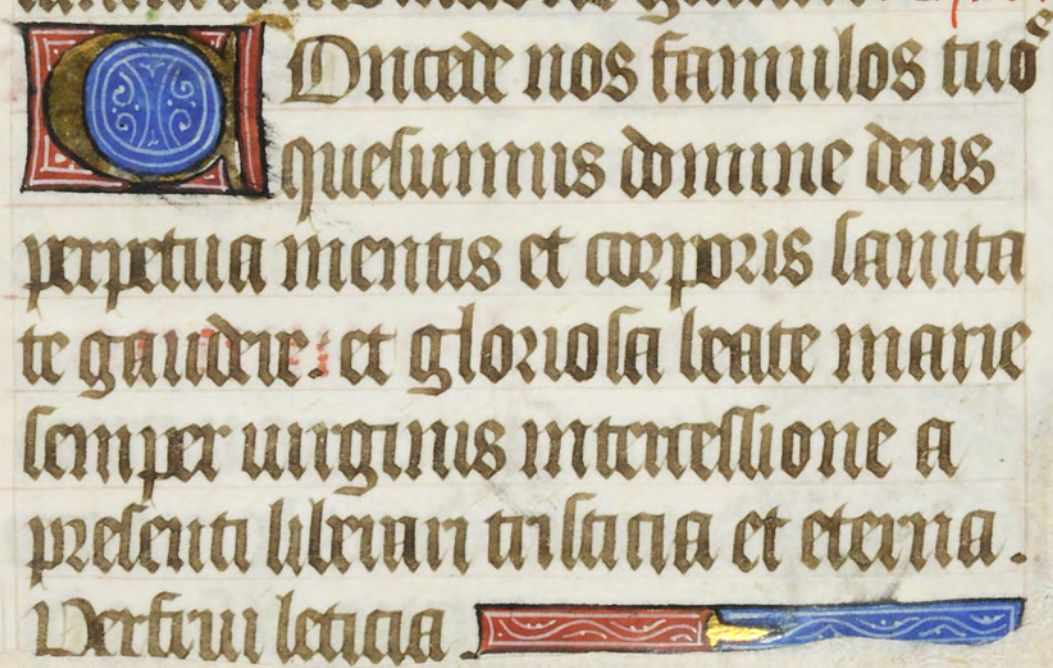 Concede nos famulos tuos
quesumus domine deus
perpetua mentis et corporis sanita
te gaudere. et gloriosa beate marie
semper uirginis intercessione a
presenti liberari tristicia et eterna.
Perfrui leticia.